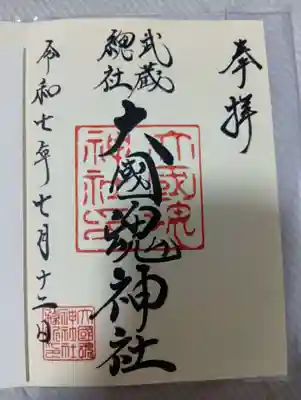 奉拝
武蔵
總社
大國魂神社
大國魂
神社印
令和七年七月十二日
大國魂
神社